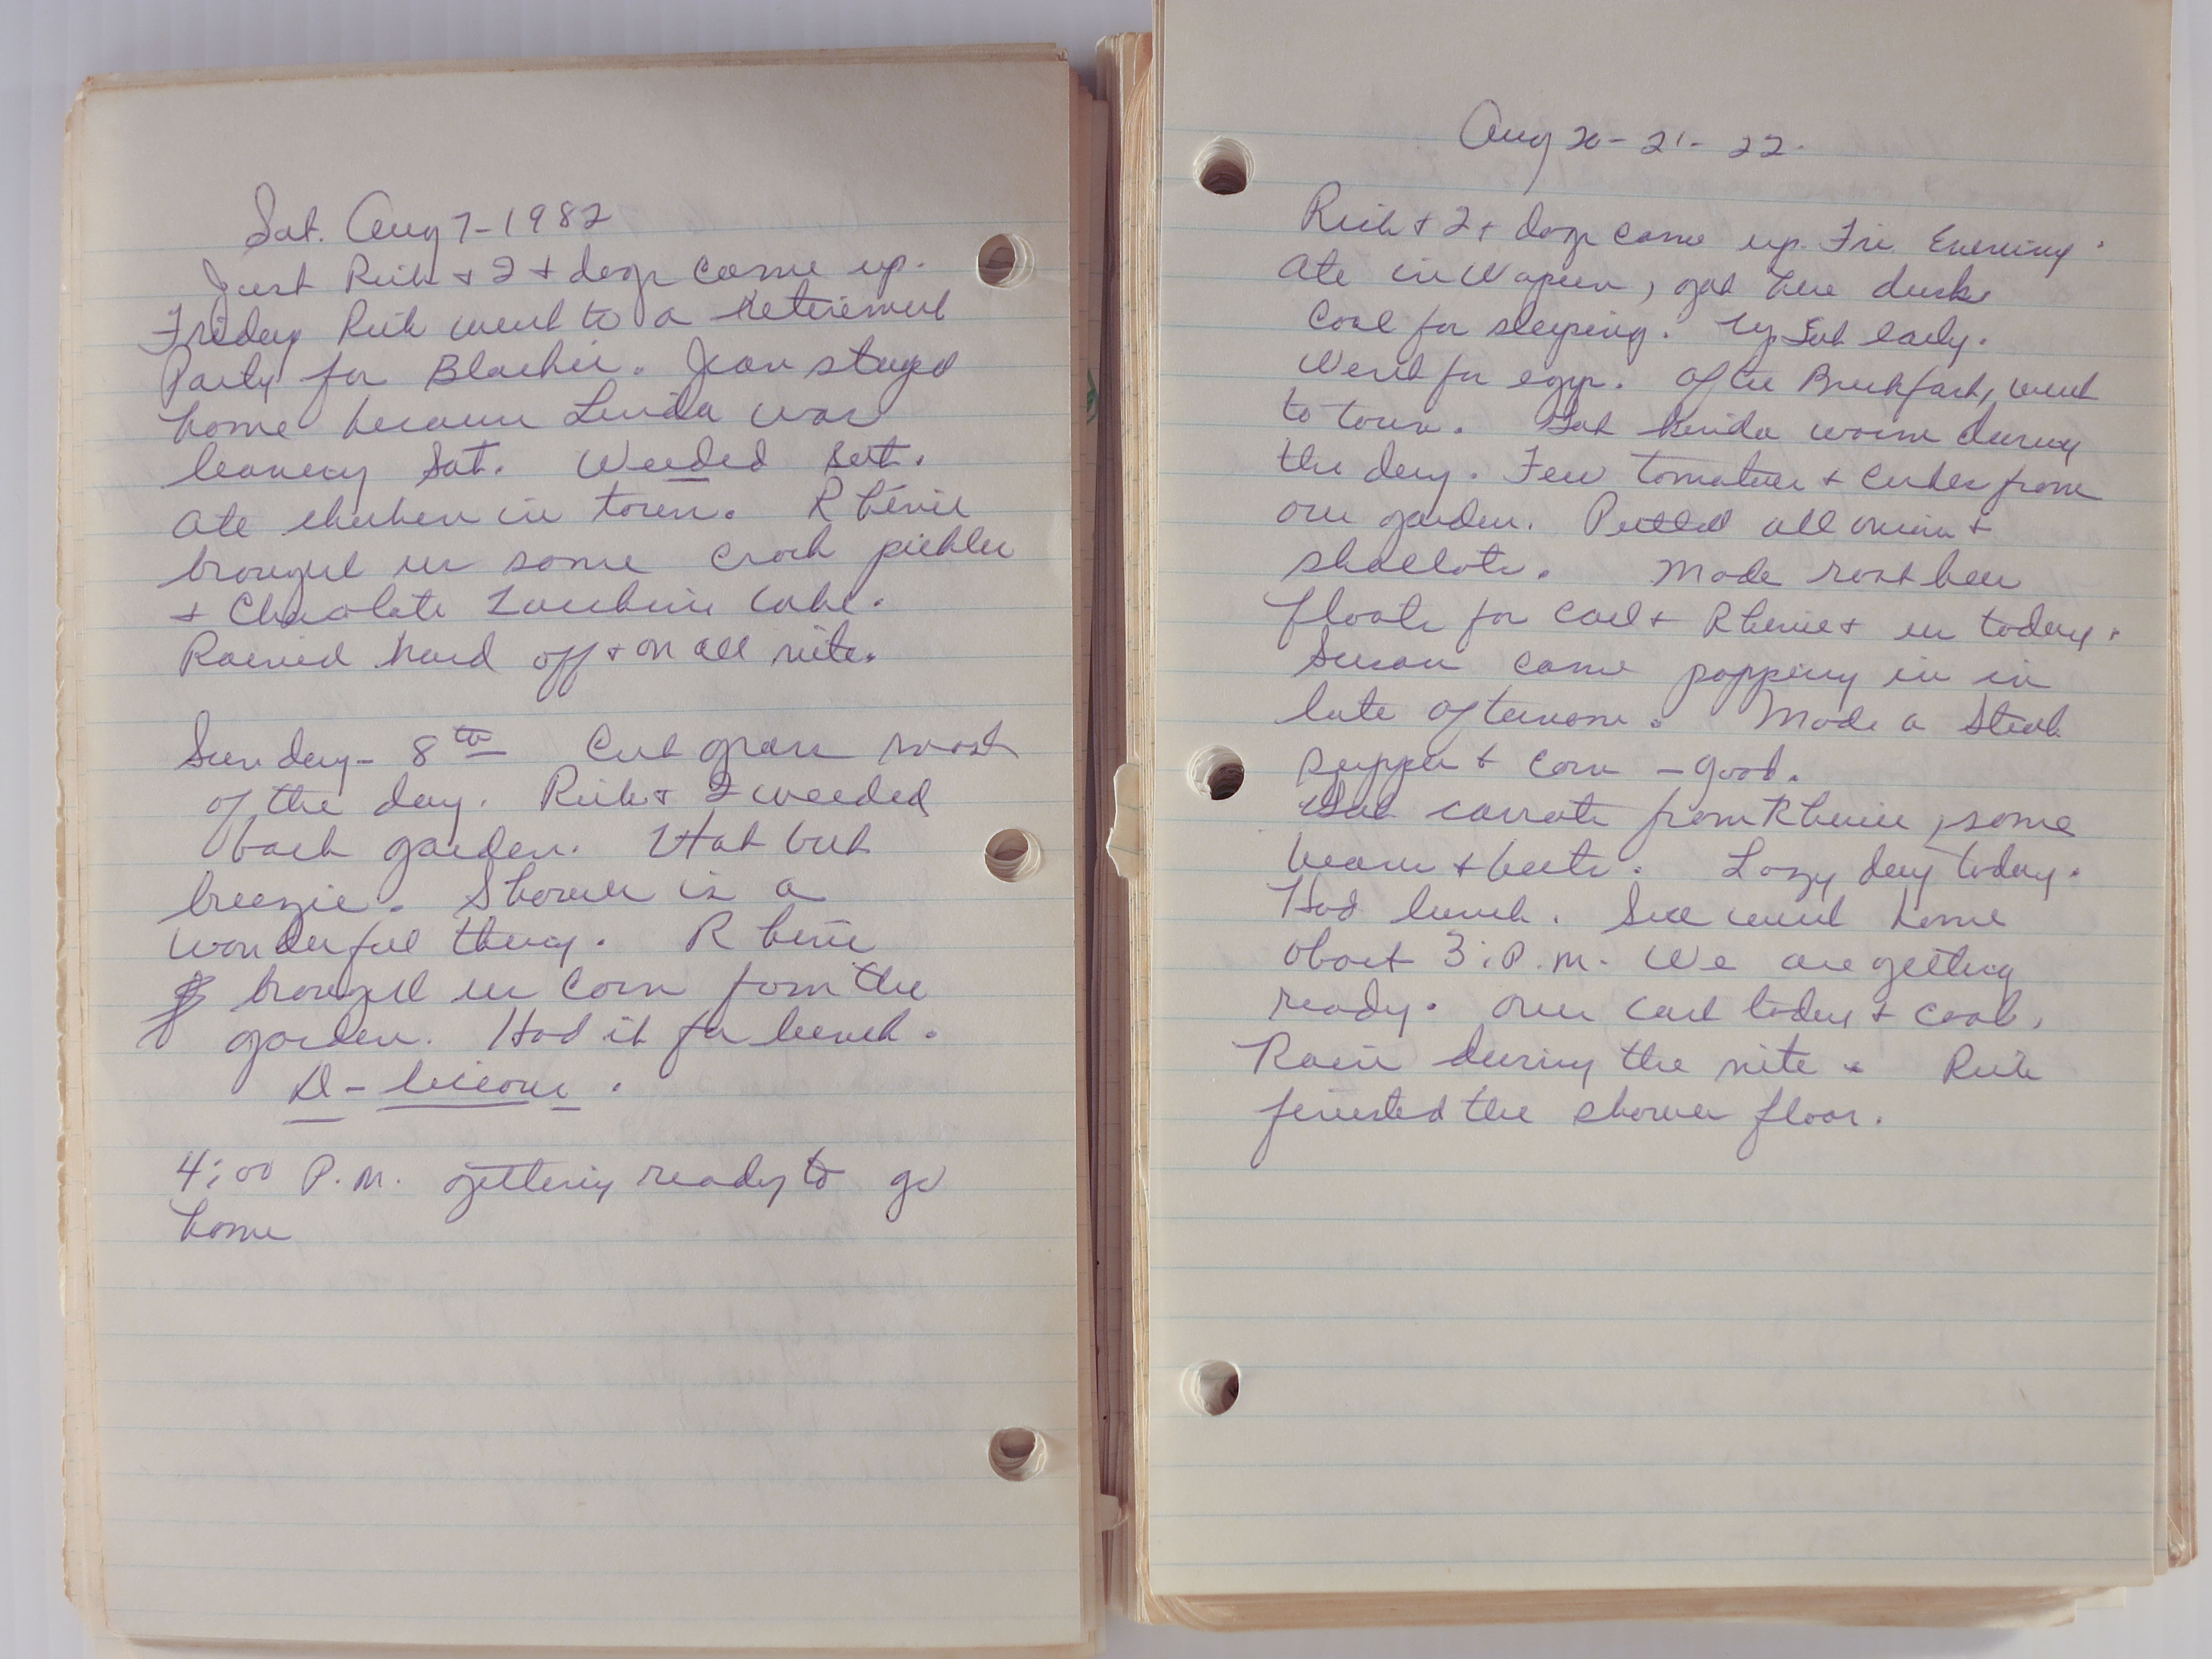 Sat. Aug 7-1982
Just Rich + I + dogs came up.
Friday Rich went to a Retirement
Party for Blackie. Jean stayed
home because Linda was
leaving Sat. Weeded Sat.
Ate chicken in town. Rhenie
brought us some crock pickles
+ Chocolate Zucchini cake.
Rained hard off + on all nite.
Sunday - 8th Cut grass most
of the day. Rich + I weeded
back garden. Hot but
breezie. Shower is a
wonderful thing. Rhenie
brought us corn from the
garden. Had it for lunch.
D-licious.
4:00 P.M. getting ready to go
home
Aug 20-21-22.
Rich + I + dogs came up Fri. Evening.
Ate in Waupun, got here dusk.
Cool for sleeping. Up Sat early.
Went for eggs. After Breakfast, went
to town. Got kinda warm during
the day. Few tomatoes + cukes from
our garden. Pulled all onions +
shallots. Made root beer
floats for Carl + Rhenie + us today.
Susan came popping in in
late afternoon. Made a Steak
supper + corn - good.
Got carrots from Rhenie, some
beans + beets. Lazy day today.
Had lunch. Sue went home
about 3: P.M. We are getting
ready. Over cast today + cool.
Rain during the nite. Rich
finished the shower floor.